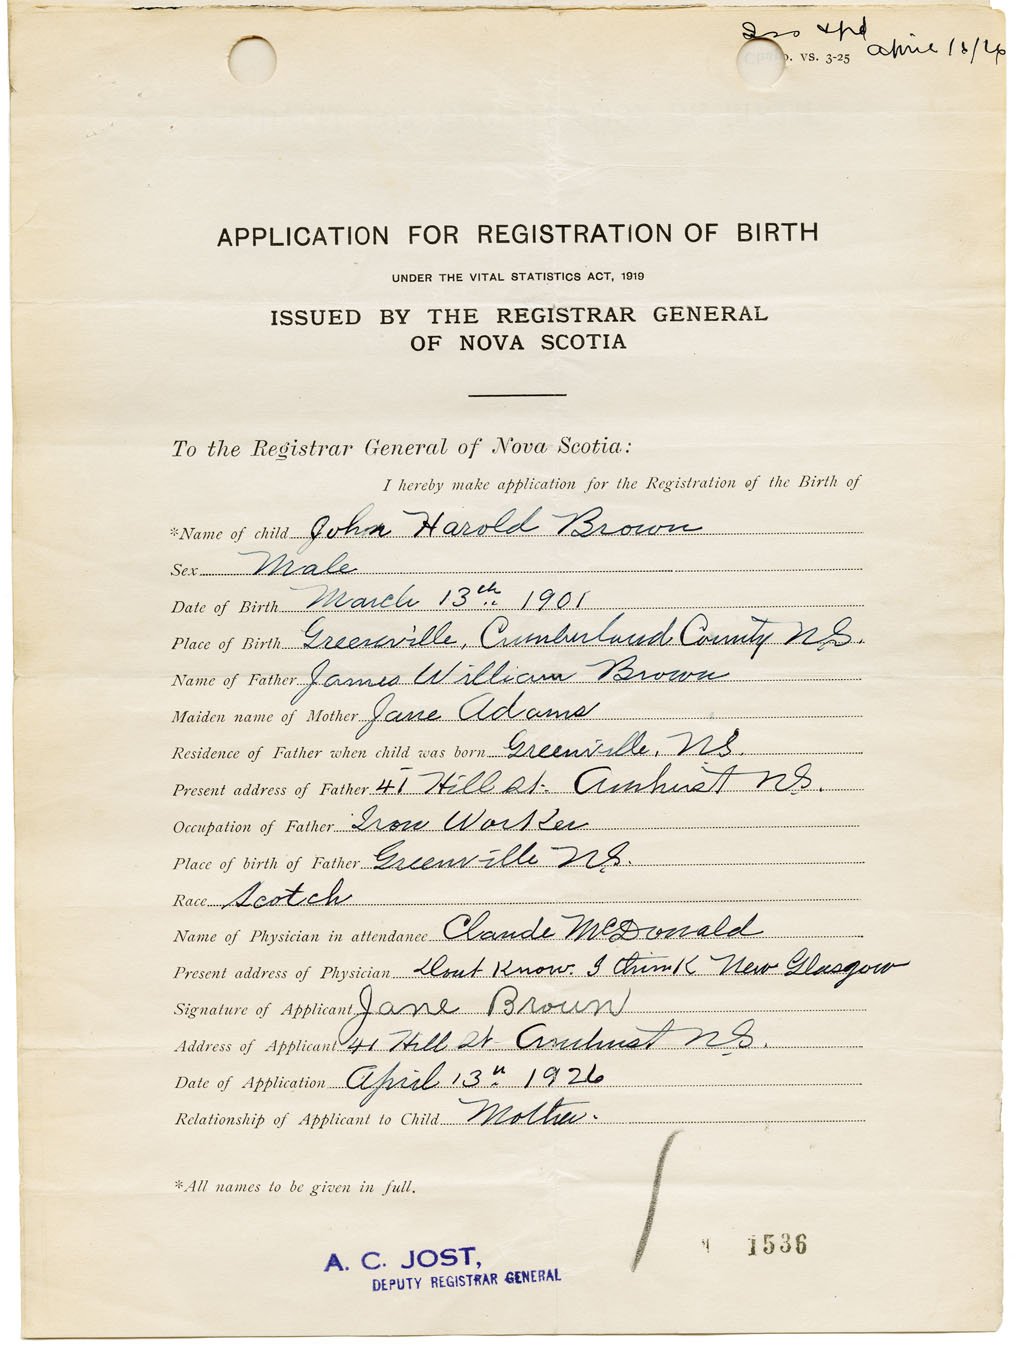 april 13/26
. vs. 3-25
APPLICATION FOR REGISTRATION OF BIRTH
UNDER THE VITAL STATISTICS ACT, 1919
ISSUED BY THE REGISTRAR GENERAL
OF NOVA SCOTIA
To the Registrar General of Nova Scotia:
I hereby make application for the Registration of the Birth of
*Name of child John Harold Brown
Sex Male
Date of Birth March 13th 1901
Place of Birth Greenville, Cumberland County N.S.
Name of Father James William Brown
Maiden name of Mother Jane Adams
Residence of Father when child was born Greenville, NS.
Present address of Father 41 Hill St. Amhurst NS.
Occupation of Father Iron Worker
Place of birth of Father Greenville N.S.
Race Scotch
Name of Physician in attendance Claude McDonald
Present address of Physician Dont Know. I think New Glasgow
Signature of Applicant Jane Brown
Address of Applicant 41 Hill St Amhurst N.S.
Date of Application April 13th 1926
Relationship of Applicant to Child Mother.
*All names to be given in full.
1536
A. C. JOST,
DEPUTY REGISTRAR GENERAL